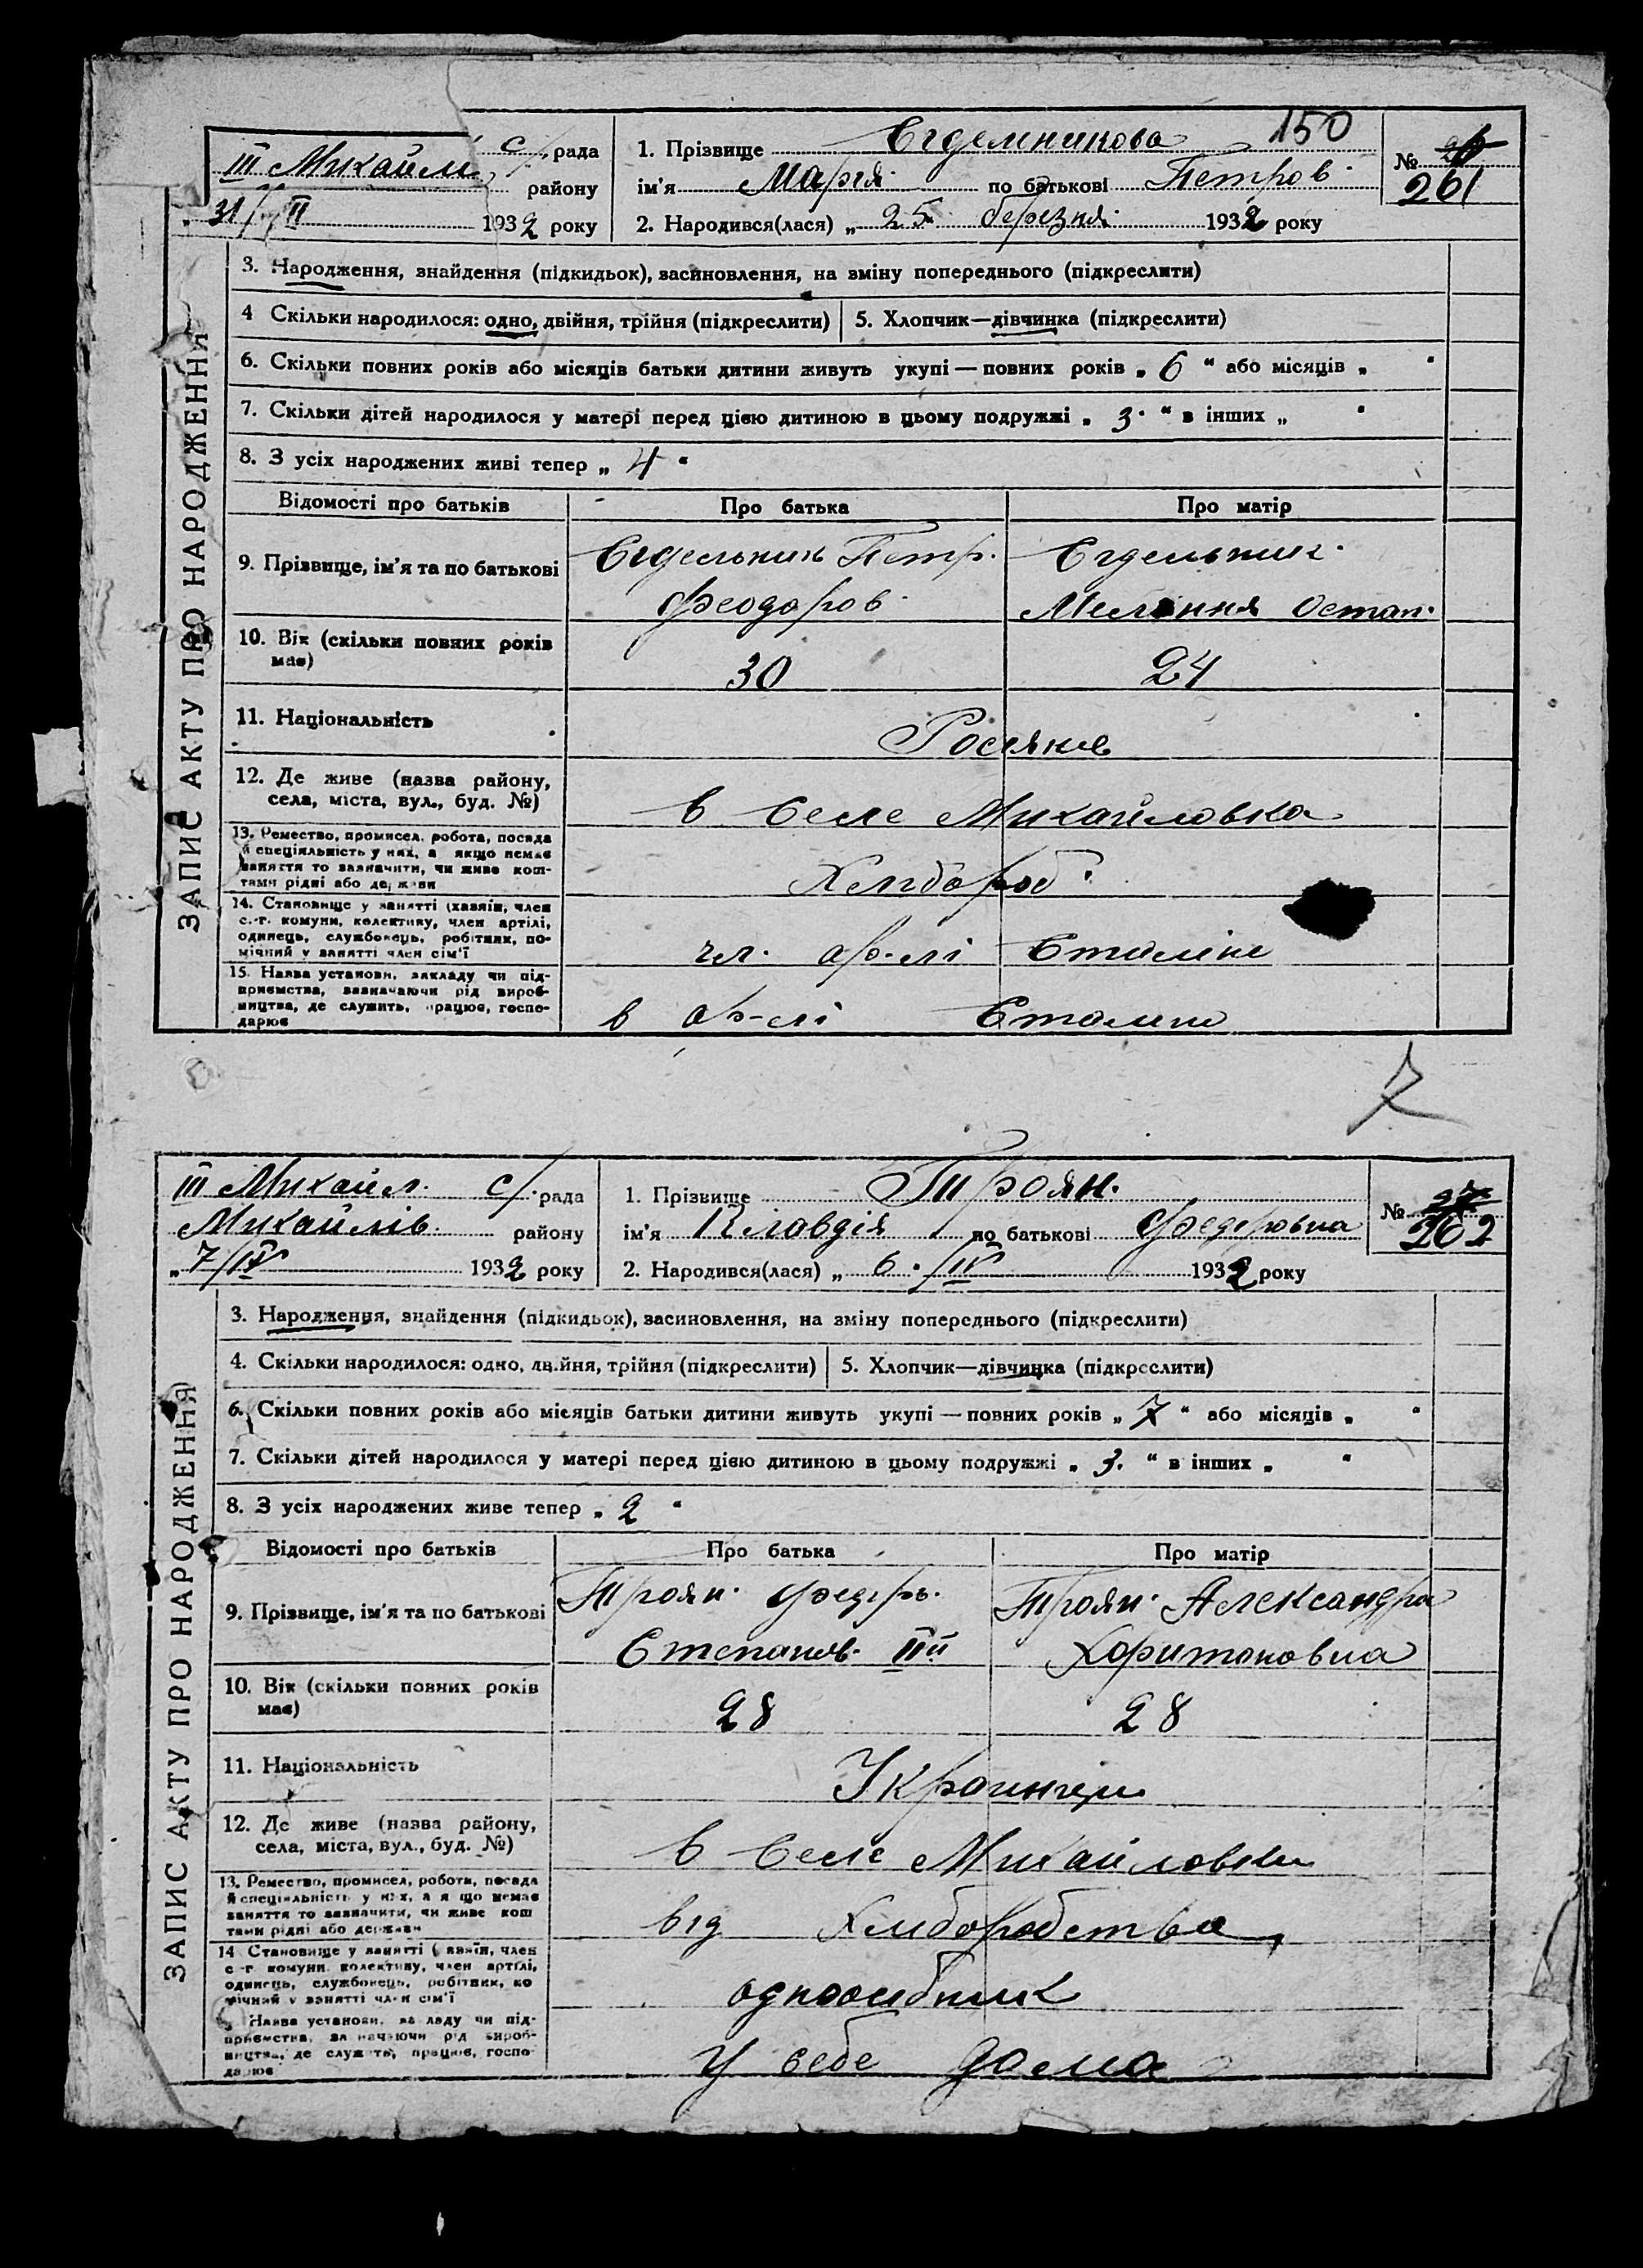 150
III Михайл с/рада
району
„31/III 1932 року
1. Прізвище
ім'я Марія по батькові Петров.
2. Народився(лася) „25" березня 1932 року
№
261
ЗАПИС АКТУ ПРО НАРОДЖЕННЯ
3. Народження, знайдення (підкидьок), засиновлення, на зміну попереднього (підкреслити)
4 Скільки народилося: одно, двійня, трійня (підкреслити) 5. Хлопчик—дівчинка (підкреслити)
6. Скільки повних років або місяців батьки дитини живуть укупі — повних років „ 6 “ або місяців „ “
7. Скільки дітей народилося у матері перед цією дитиною в цьому подружжі „ 3. “ в інших „ “
8. З усіх народжених живі тепер „ 4 “
Відомості про батьків Про батька Про матір
9. Прізвище, ім'я та по батькові Петр.
Феодоров. Остап.
10. Вік (скільки повних років
має) 30 24
11. Національність Росіяне
12. Де живе (назва району,
села, міста, вул., буд. №) в Селе Михайловка
13. Ремество, промисел, робота, посада
й спеціяльність у них, а якщо немає
заняття то зазначити, чи живе кош-
тами рідні або держави Хлібороб.
14. Становище у занятті (хазяїн, член
с.-г. комуни, колективу, член артілі,
одинець, службовець, робітник, по-
мічний у занятті член сім'ї чл. ар-лі Сталіне
15. Назва установи, закладу чи під-
приємства, зазначаючи рід вироб-
ництва, де служить, працює, госпо-
дарює в ар-лі Сталине
7
III Михайл. с/. рада
Михайлів. району
„7/IV 1932 року
1. Прізвище Троян.
ім'я Клавдія по батькові Федоровна
2. Народився(лася) „ 6. /IV 1932 року
№ 27
262
ЗАПИС АКТУ ПРО НАРОДЖЕННЯ
3. Народження, знайдення (підкидьок), засиновлення, на зміну попереднього (підкреслити)
4. Скільки народилося: одно, двійня, трійня (підкреслити) 5. Хлопчик—дівчинка (підкреслити)
6. Скільки повних років або місяців батьки дитини живуть укупі — повних років „ 7 “ або місяців „ “
7. Скільки дітей народилося у матері перед цією дитиною в цьому подружжі „ 3. “ в інших „ “
8. З усіх народжених живе тепер „ 2 “
Відомості про батьків Про батька Про матір
9. Прізвище, ім'я та по батькові Троян. Федорь. Троян. Александра
Степанов. IIй Харитоновна
10. Вік (скільки повних років
має) 28 28
11. Національність Украинцы
12. Де живе (назва району,
села, міста, вул., буд. №) в Селе Михайловки
13. Ремество, промисел, робота, посада
й спеціяльність у них, а я що немає
заняття то зазначити, чи живе кош
тами рідні або держави від Хліборобства
14 Становище у занятті ( азяїн, член
с -г. комуни, колективу, член артілі,
одинець, службовець, робітник, по
мічний у занятті член сім'ї одноосібник
Назва установи, закладу чи під-
приємства, зазначаючи рід вироб-
ництва, де служить, працює, госпо
дарює у себе дома